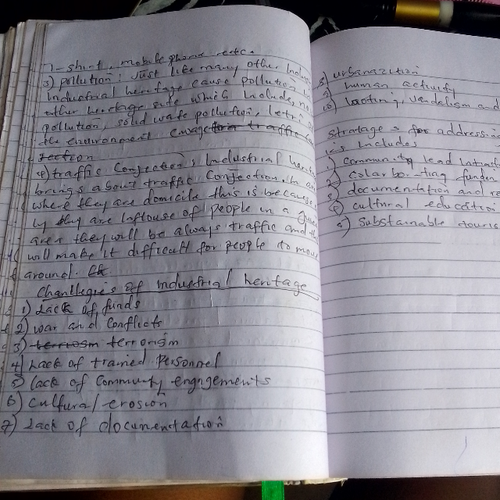 T-shirt, mobile phone etc.
3) pollution: Just like many other Indus
Industrial heritage cause pollution
other heritage site which include, no
pollution, solid waste pollution,
the environment
tection
4) traffic Conjection: Industrial herita
brings about traffic Conjection in
where they are domicile this is because
if they are of people in a
area they will be always traffic and
will make it difficult for people to move
around.
Challegies of industrial heritage
1) Lack of funds
2) war and conflicts
3) terrorism terrorism
4) Lack of trained personnel
5) Lack of Community engagements
6) Cultural erosion
7) Lack of documentation
8) urbanization
9) human activity
10) looting, vandalism and
strategies for addressing
is includes
1) community lead
2) funding
3) documentation and re
4) cultural education
5) Substainable